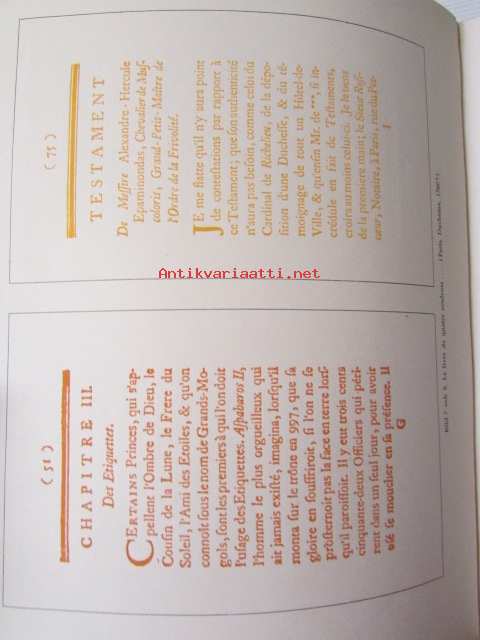 ( 51 )
CHAPITRE III.
Des Etiquettes.
CERTAINS Princes, qui s'ap-
pellent l'Ombre de Dieu, le
Cousin de la Lune, le Frere du
Soleil, l'Ami des Etoiles, & qu'on
connoît sous le nom de Grands-Mo-
gols, sont les premiers à qui l'on doit
l'usage des Etiquettes. Aspabaros II,
l'homme le plus orgueilleux qui
ait jamais existé, imagina, lorsqu'il
monta sur le trône en 997, que sa
gloire en souffriroit, si l'on ne se
prosternoit pas la face en terre lors-
qu'il paroissoit. Il y eut trois cents
cinquante-deux Officiers qui péri-
rent dans un seul jour, pour avoir
osé se moucher en sa présence. Il
G
( 75 )
TESTAMENT
De Messire Alexandre-Hercule
Epaminondas, Chevalier de Mus-
coloris, Grand-Petit-Maître de
l'Ordre de la Frivolité.
JE me flatte qu'il n'y aura point
de contestations par rapport à
ce Testament; que son authenticité
n'aura pas besoin, comme celui du
Cardinal de Richelieu, de la dépo-
sition d'une Duchesse, & du té-
moignage de tout un Hôtel-de-
Ville, & qu'enfin Mr. de ***, si in-
crédule en fait de Testaments,
croira au moins celui-ci. Je le tiens
de la premiere main; le Sieur
cœur, Notaire, à Paris, rue du
Bild 7 och 8. Le livre de quatre couleurs ... (Paris, Duchesne,
Antikvariaatti.net